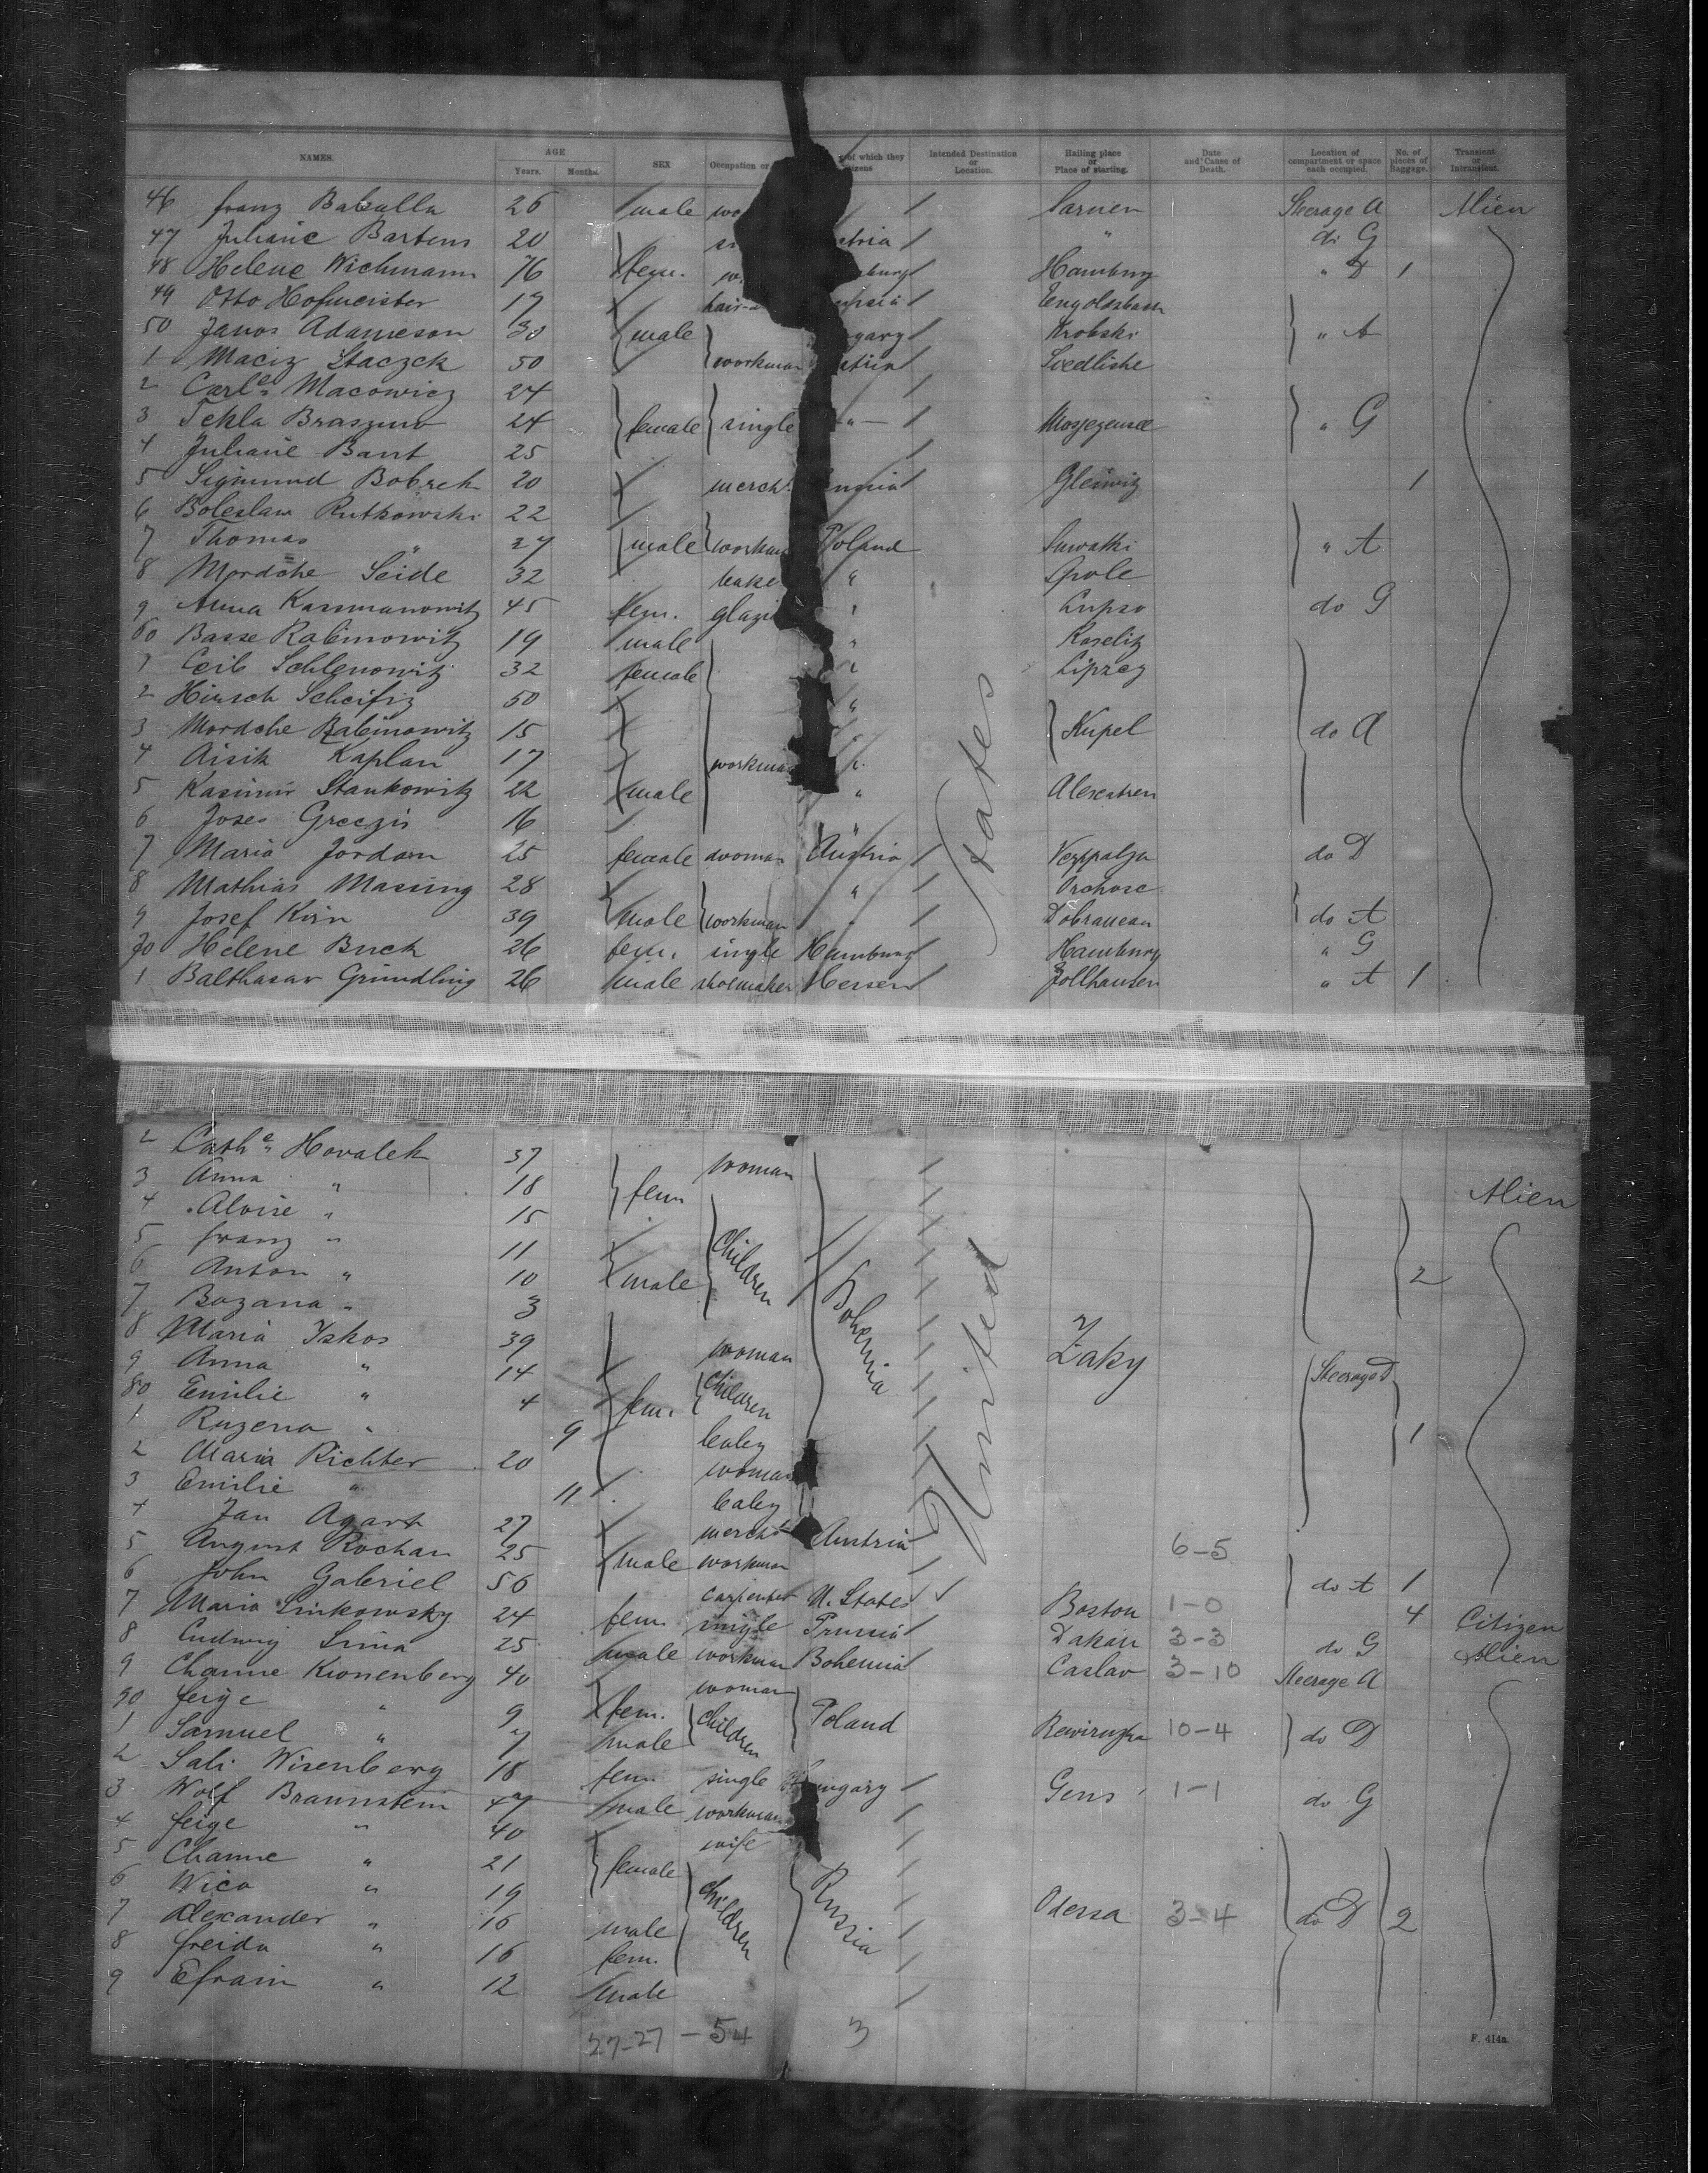 NAMES. AGE Years. Months. SEX Occupation or of which they Intended Destination or Location. Hailing place or Place of starting. Date and Cause of Death. Location of compartment or space each occupied. No. of pieces of Baggage. Transient or Intransient.
46 franz 26 male Sarnen Steerage A Alien
47 Juliane Bartens 20 " do G
48 Helene Wichmann 76 fem. Hamburg " D 1
49 Otto Hofmeister 17
50 Janos Adameson 30 male " A
1 Maciz Staczek 50 workman Siedliske
2 Carle Macowicz 24
3 Tekla 24 female single " " G
4 Juliane Bant 25
5 Sigmund Bobrek 20 merch. Gleiwiz 1
6 Boleslaw Rutkowski 22
7 Thomas " 27 male workman Poland Suwalki " A
8 Mordche Seide 32 " Opole
9 Anna Kassmanowitz 45 fem. " Lupso do G
60 Basse Rabinowitz 19 male " Koselitz
1 Ceib Schlenowitz 32 female "
2 Hirsch 50 "
3 Mordche Rabinowitz 15 " Kupel do A
4 Aisik Kaplan 17 workman "
5 Kasimir Stankowitz 22 male "
6 Joses 16 "
7 Maria Jordan 25 female woman Austria do D
8 Mathias Massing 28 "
9 Josef Kirn 39 male workman " do A
70 Helene Buck 26 fem. single Hamburg Hamburg " G
1 Balthasar Gründling 26 male shoemaker Hessen Zollhausen " A 1
States
2 Cathe Hovalek 37 woman
3 Anna " 18 fem Alien
4 Aloise " 15
5 franz " 11 children
6 Anton " 10 male Bohemia 2
7 Bozana " 3
8 Maria Iskos 39 woman Zaky
9 Anna " 14 Steerage D
80 Emilie " 4 fem. children
1 Ruzena " 9 baby 1
2 Maria Richter 20 woman
3 Emilie " 11 baby
4 Jan Agart 27 merch Austria
5 August Rochan 25 male workman 6-5
6 John Gabriel 56 carpenter U. States do A 1
7 Maria Sinkowsky 24 fem. single Prussia Boston 1-0 4 Citizen
8 Ludwig Sima 25 male workman Bohemia Dakau 3-3 do G Alien
9 Channe Kronenberg 40 woman Caslav 3-10 Steerage A
90 feige " 9 fem. children Poland
1 Samuel " 7 male 10-4 do D
2 Sali Wisenberg 18 fem. single Hungary
3 Wolf Braunstein 47 male workman Gens 1-1 do G
4 feige " 40 wife
5 Channe " 21 female
6 Wico " 19 children Russia
7 Alexander " 16 male Odessa 3-4 do D 2
8 freida " 16 fem.
9 Efraim " 12 male
United
27-27 - 54 3
F. 414a.